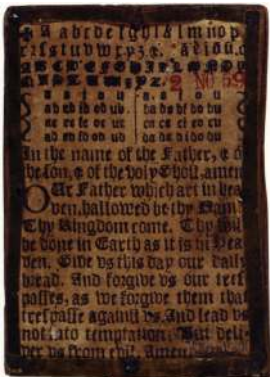 ✠ A a b c d e f g h i k l m n o p
q r s ſ t u v w x y z &. a e i o u.
A B C D E F G H I K L M N O P Q
R S T U W X Y Z. 2 NO 59
a e i o u a e i o u
ab eb ib ob ub ba be bi bo bu
ac ec ic oc uc ca ce ci co cu
ad ed id od ud da de di do du
In the name of the Father, & of
the Son, & of the holy Ghoſt, amen
OUr Father which art in hea
ven, hallowed be thy Name
Thy Kingdom come. Thy Wil
be done in Earth as it is in Hea
ven. Give vs this day our daily
bread. And forgive vs our treſ
paſſes, as we forgive them that
treſpaſſe againſt vs. And lead vs
not into temptation; But deli-
ver vs from evil. Amen